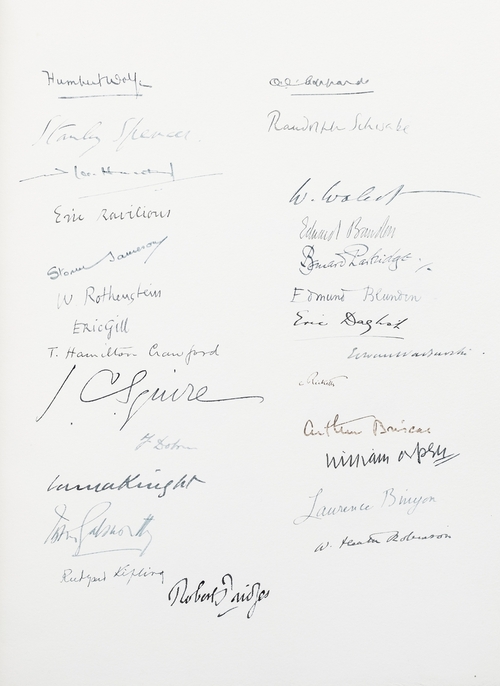 Humbert Wolfe
Stanley Spencer.
Eric Ravilious
Storm Jameson
W Rothenstein
Eric Gill
T. Hamilton Crawford
J C Squire
F Dobson
Laura Knight
John Galsworthy
Rudyard Kipling
Robert Bridges
Randolph Schwabe
W. Walcot
Edward Bawden
Bernard Partridge.
Edmund Blunden
Eric Daglish
Edward Wadsworth.
Arthur Briscoe
William Orpen
Laurence Binyon
W. Heath Robinson